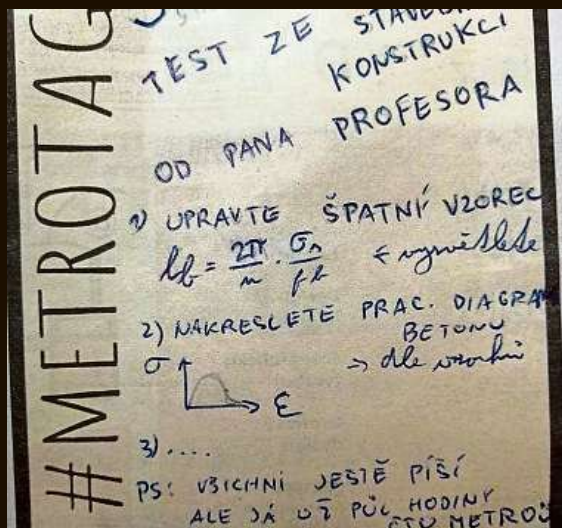 #METROTAG
TEST ZE
KONSTRUKCÍ
OD PANA PROFESORA
1) UPRAVTE ŠPATNÍ VZOREC
= 2π/n · σn/ ← vysvětlete
2) NAKRESLETE PRAC. DIAGRAM
BETONU
σ → dle
ε
3)....
PS: VŠICHNI JEŠTĚ PÍŠÍ
ALE JÁ UŽ PŮL HODINY
ČTU METRO